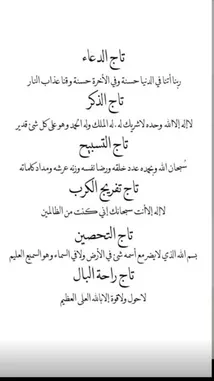 تاج الدعاء
ربنا أتنا في الدنيا حسنة وفي الأخرة حسنة وقنا عذاب النار
تاج الذكر
لاإله إلاالله وحده لاشريك له . له الملك وله الحمد وهو على كل شئ قدير
تاج التسبيح
سُبحان الله وبحمده عدد خلقه ورضا نفسه وزنة عرشه ومداد كلماته
تاج تفريج الكرب
لاإله إلاأنت سبحانك إني كنت من الظالمين
تاج التحصين
بسم الله الذي لايضر مع أسمه شئ في الأرض ولافي السماء وهو السميع العليم
تاج راحة البال
لاحول ولاقوة إلابالله العلى العظيم